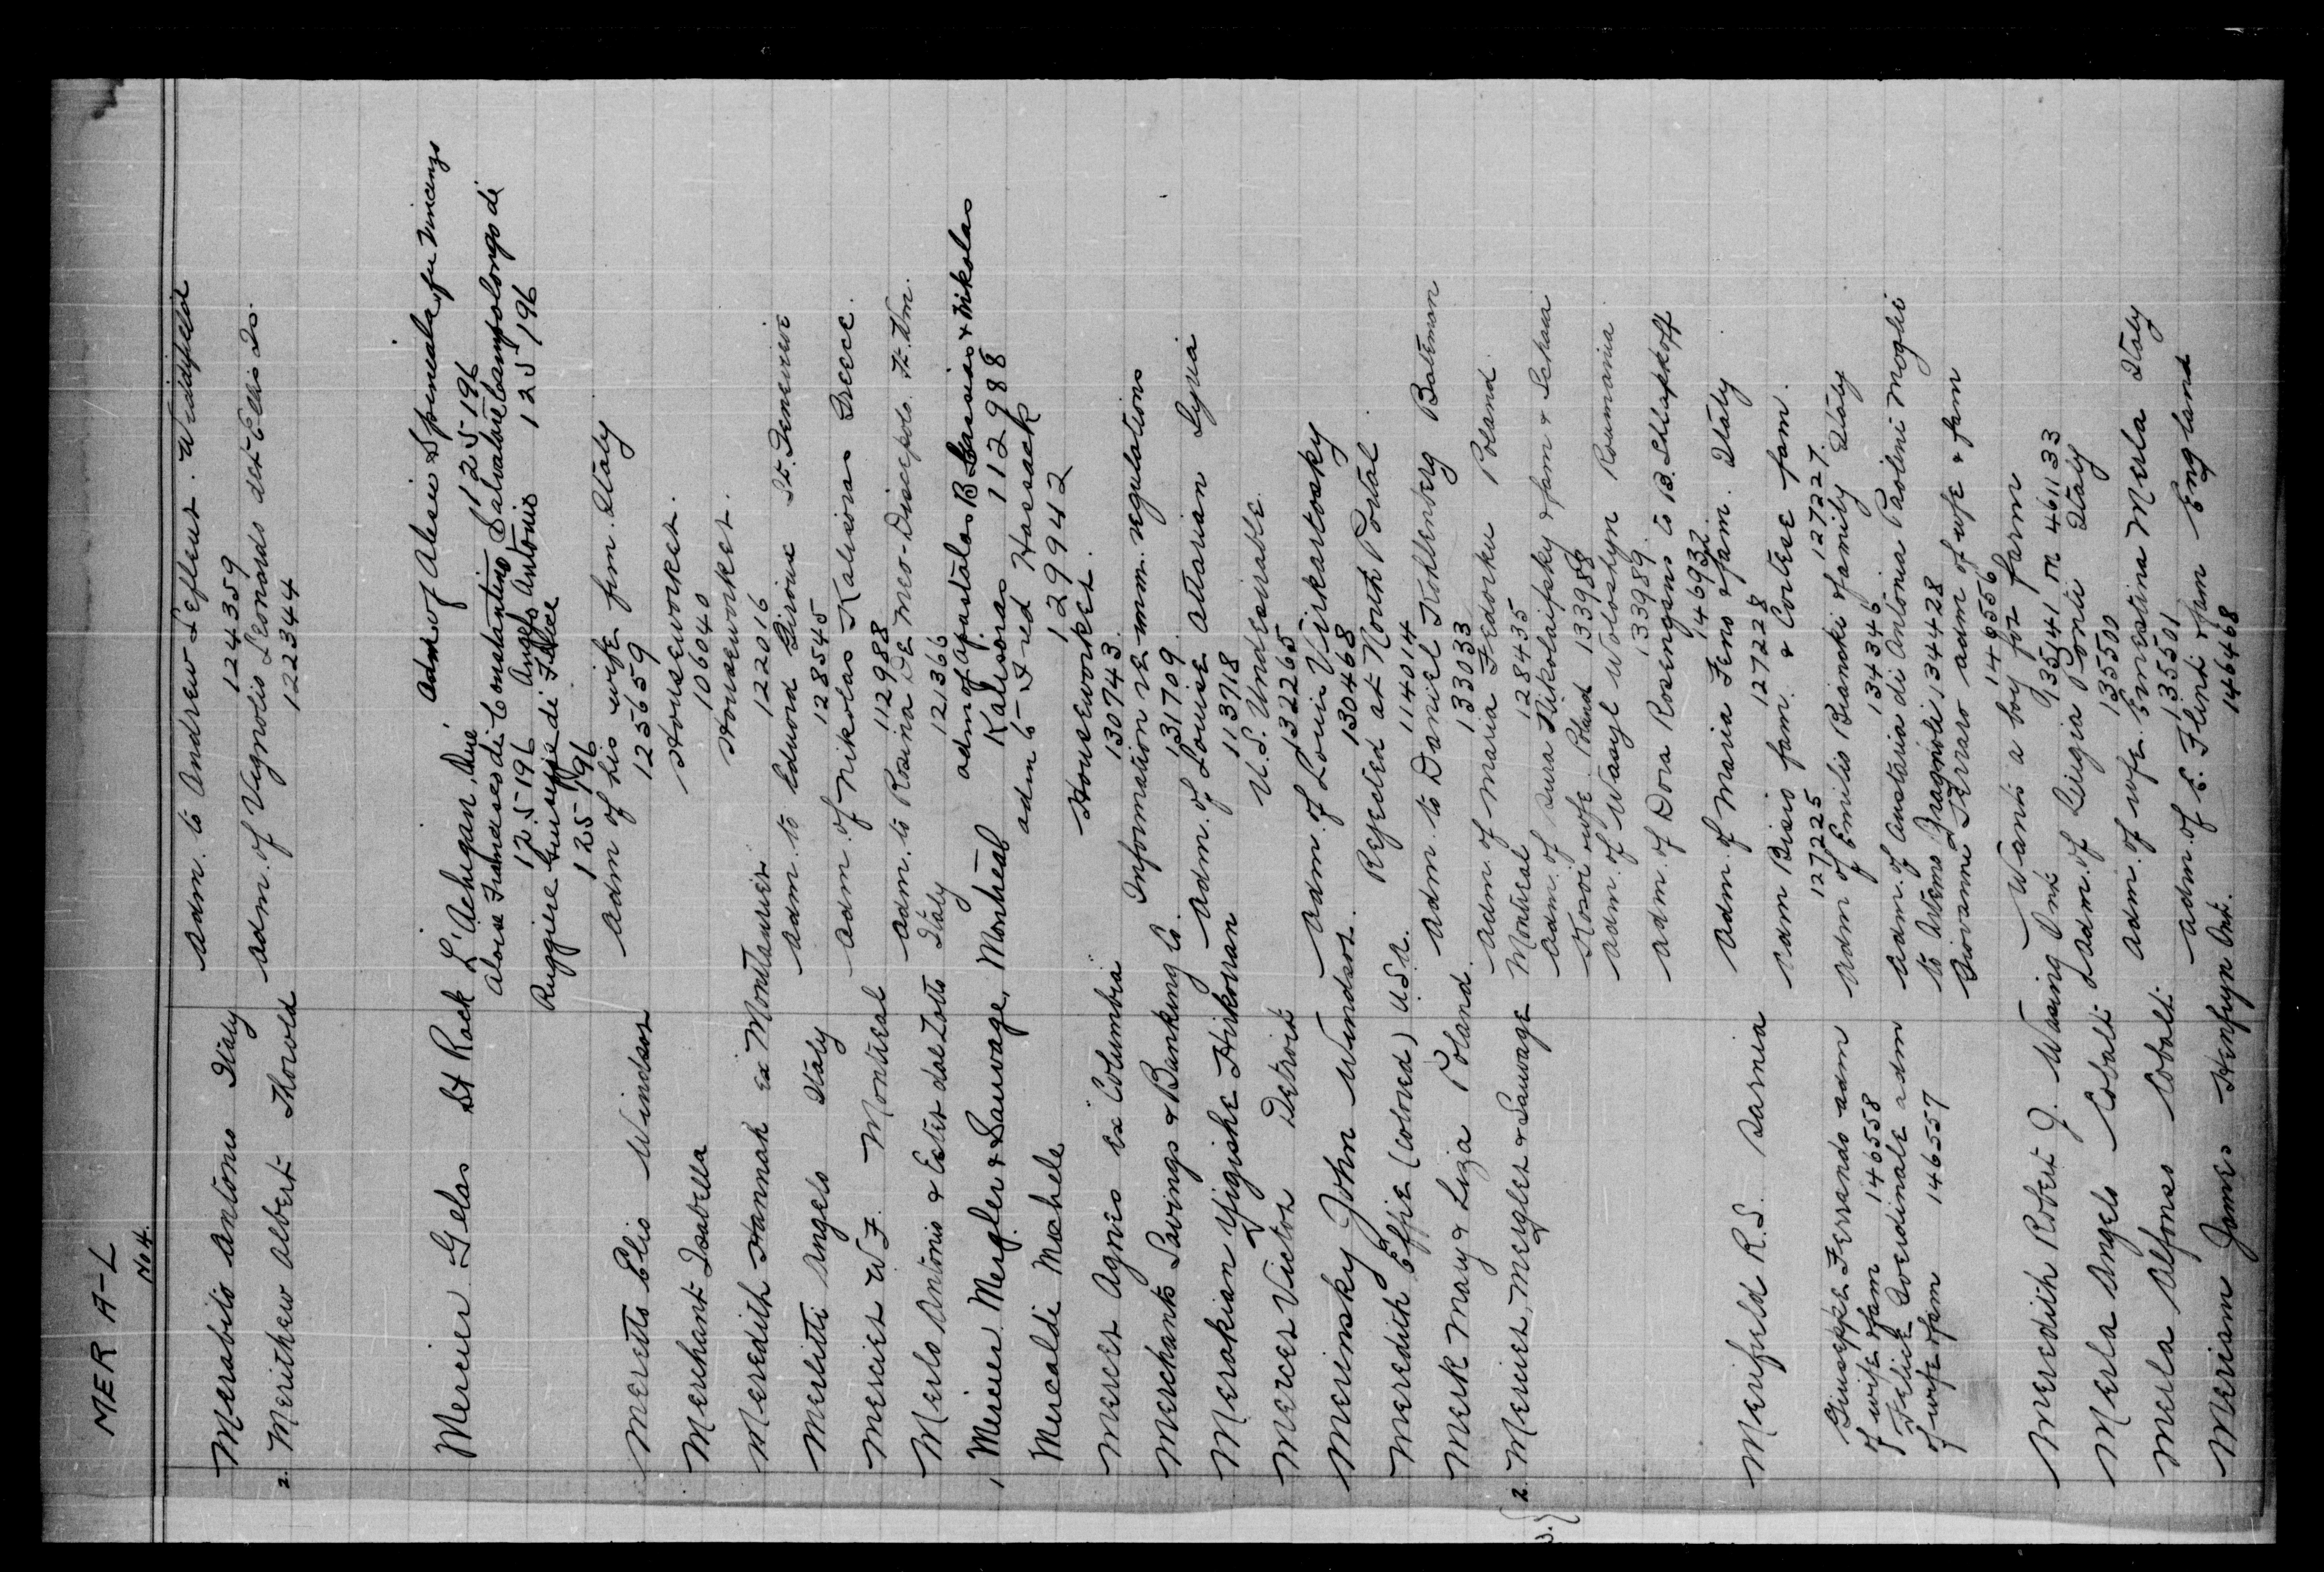 MER A-L
No 4.
Merabito Antonio Italy adm. to Andrew Lefleur. Widdifield
124359
2. Merithew Albert Thorold adm. of Vignolio Leonardo det-Ellis Is.
122344
Mercier Gelas St Rock L'Achigan, Que adm of Alesio Spineala fu Vincenzo
125196
Aloise Francesco di Constantino Salvatore Campolongo di
125196 Angelo Antonio 125196
Ruggiere Giuseppe di Felice
125196
Meretto Elio Windsor adm of his wife from Italy
125659
Merchant Isabella Houseworker.
106040
Meredith Hannah ex Montlaurier Houseworker.
122016
Merlitti Angelo Italy adm. to Edward Giroux Ste. Genevieve
128545
Mercier W.F. Montreal adm. of Nikolas Kalivoras Greece.
112988
Merlo Antonio & Ester dal Zotto Italy adm. to Rosina De Meo-Discepolo Ft. Wm.
121366
1, Mercier Megler & Sauvage, Montreal adm of Apostolos B Lassios & Nikolas
Kalivoras 112988
Mercaldi Michele adm to Fred Hassack
129942
Mercer Agnes ex Columbia Houseworker.
130743
Merchants Savings & Banking Co. Information re imm. regulations
131709
Merakian Yigishe Hirkovan adm. of Louise Attarian Syria
113718
Mercer Victor Detroit U.S. Undesirable.
132265
Merinsky John Windsor. adm. of Louis Virkartosky
130468
Meredith Effie (colored) U.S.A. Rejected at North Portal
114014
Merk May & Liza Poland. adm. to Daniel Kohlenberg Bateman
133033
2. Mercier, Megler & Sauvage Montreal adm. of Maria Fedorku Poland
128435
3. adm. of Sura Nikolaifsky & fam &
wife Poland 133988
adm. of Wasyl Woloshyn Roumania
133989.
adm. of Dora Rosengano to B. Schlapkoff
146932
Merifield R.S. Sarnia adm. of Maria Feno & fam. Italy
127228
adm Bisio fam. & Cortese fam.
127225 127227.
Giuseppe Ferrando adm adm of Emilio Bianchi & family Italy
of wife & fam 146558 134346
Felice adm adm. of Austaria di Antonia Paolini Moglie
of wife & fam 146557 to Artemo Fragnoli 134428
Giovanni Ferraro adm of wife & fam
146556
Meredith Robert J. Wasing Ont Wants a boy for farm
935541 on 461133
Merla Angelo Cobalt adm. of Luigia Ponti Italy
135500
Merla Alfonso Cobalt adm. of wife Ernestina Merla Italy
135501
Merriam James Henfryn Ont. adm. of E. Flint & fam England
146468